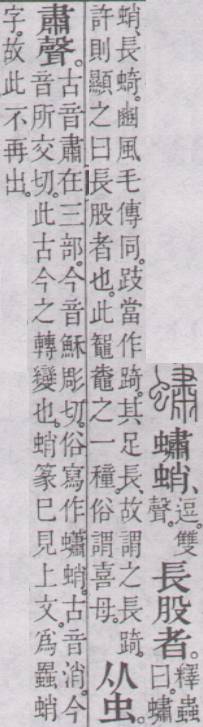 蟰蛸、逗。雙聲。長股者。釋蟲曰。蟰
蛸、長。豳風毛傳同。跂當作踦。其足長。故謂之長踦。許則顯之曰長股者也。此鼅鼄之一種。俗謂喜母。从虫。
肅聲。古音肅在三部。今音穌彫切。俗寫作蠨蛸。古音消。今音所交切。此古今之轉變也。蛸篆巳見上文。爲蛸
字。故此不再出。